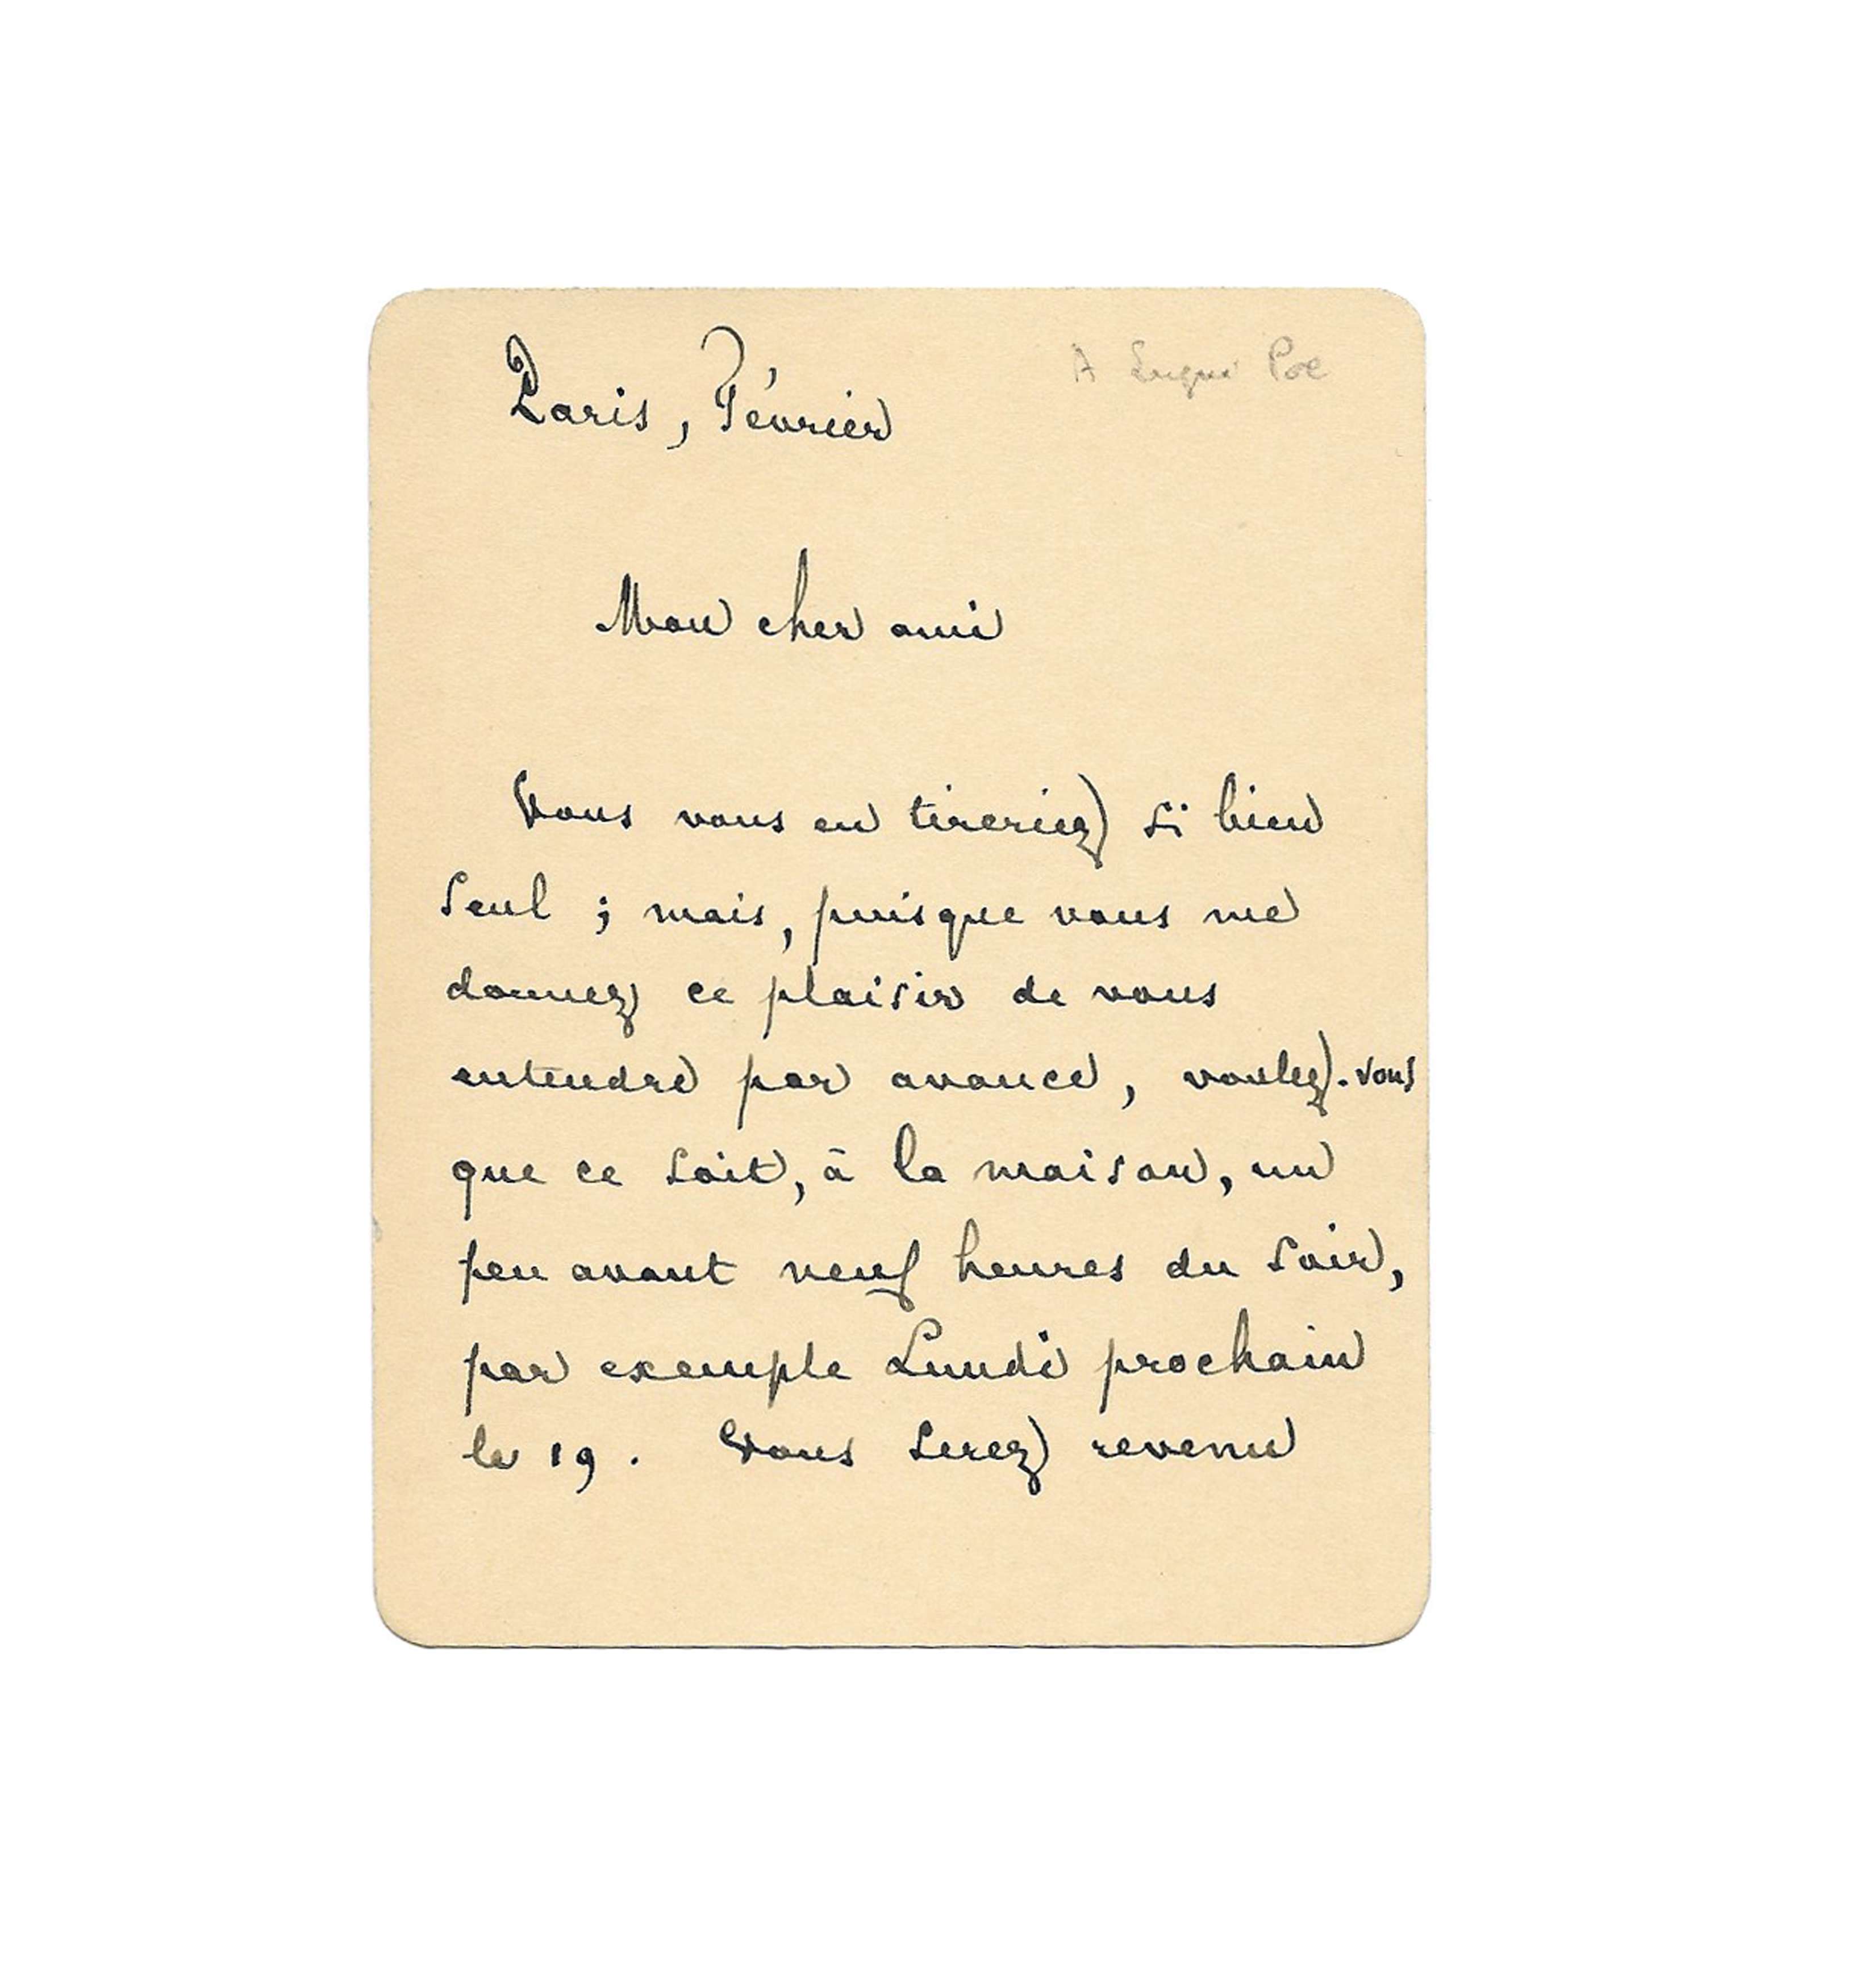 Paris, Février
A Lugné Poe
Mon cher ami
Vous vous en tireriez si bien
seul ; mais, puisque vous me
donnez ce plaisir de vous
entendre par avance, voulez-vous
que ce soit, à la maison, un
peu avant neuf heures du soir,
par exemple Lundi prochain
le 19. Vous serez revenu